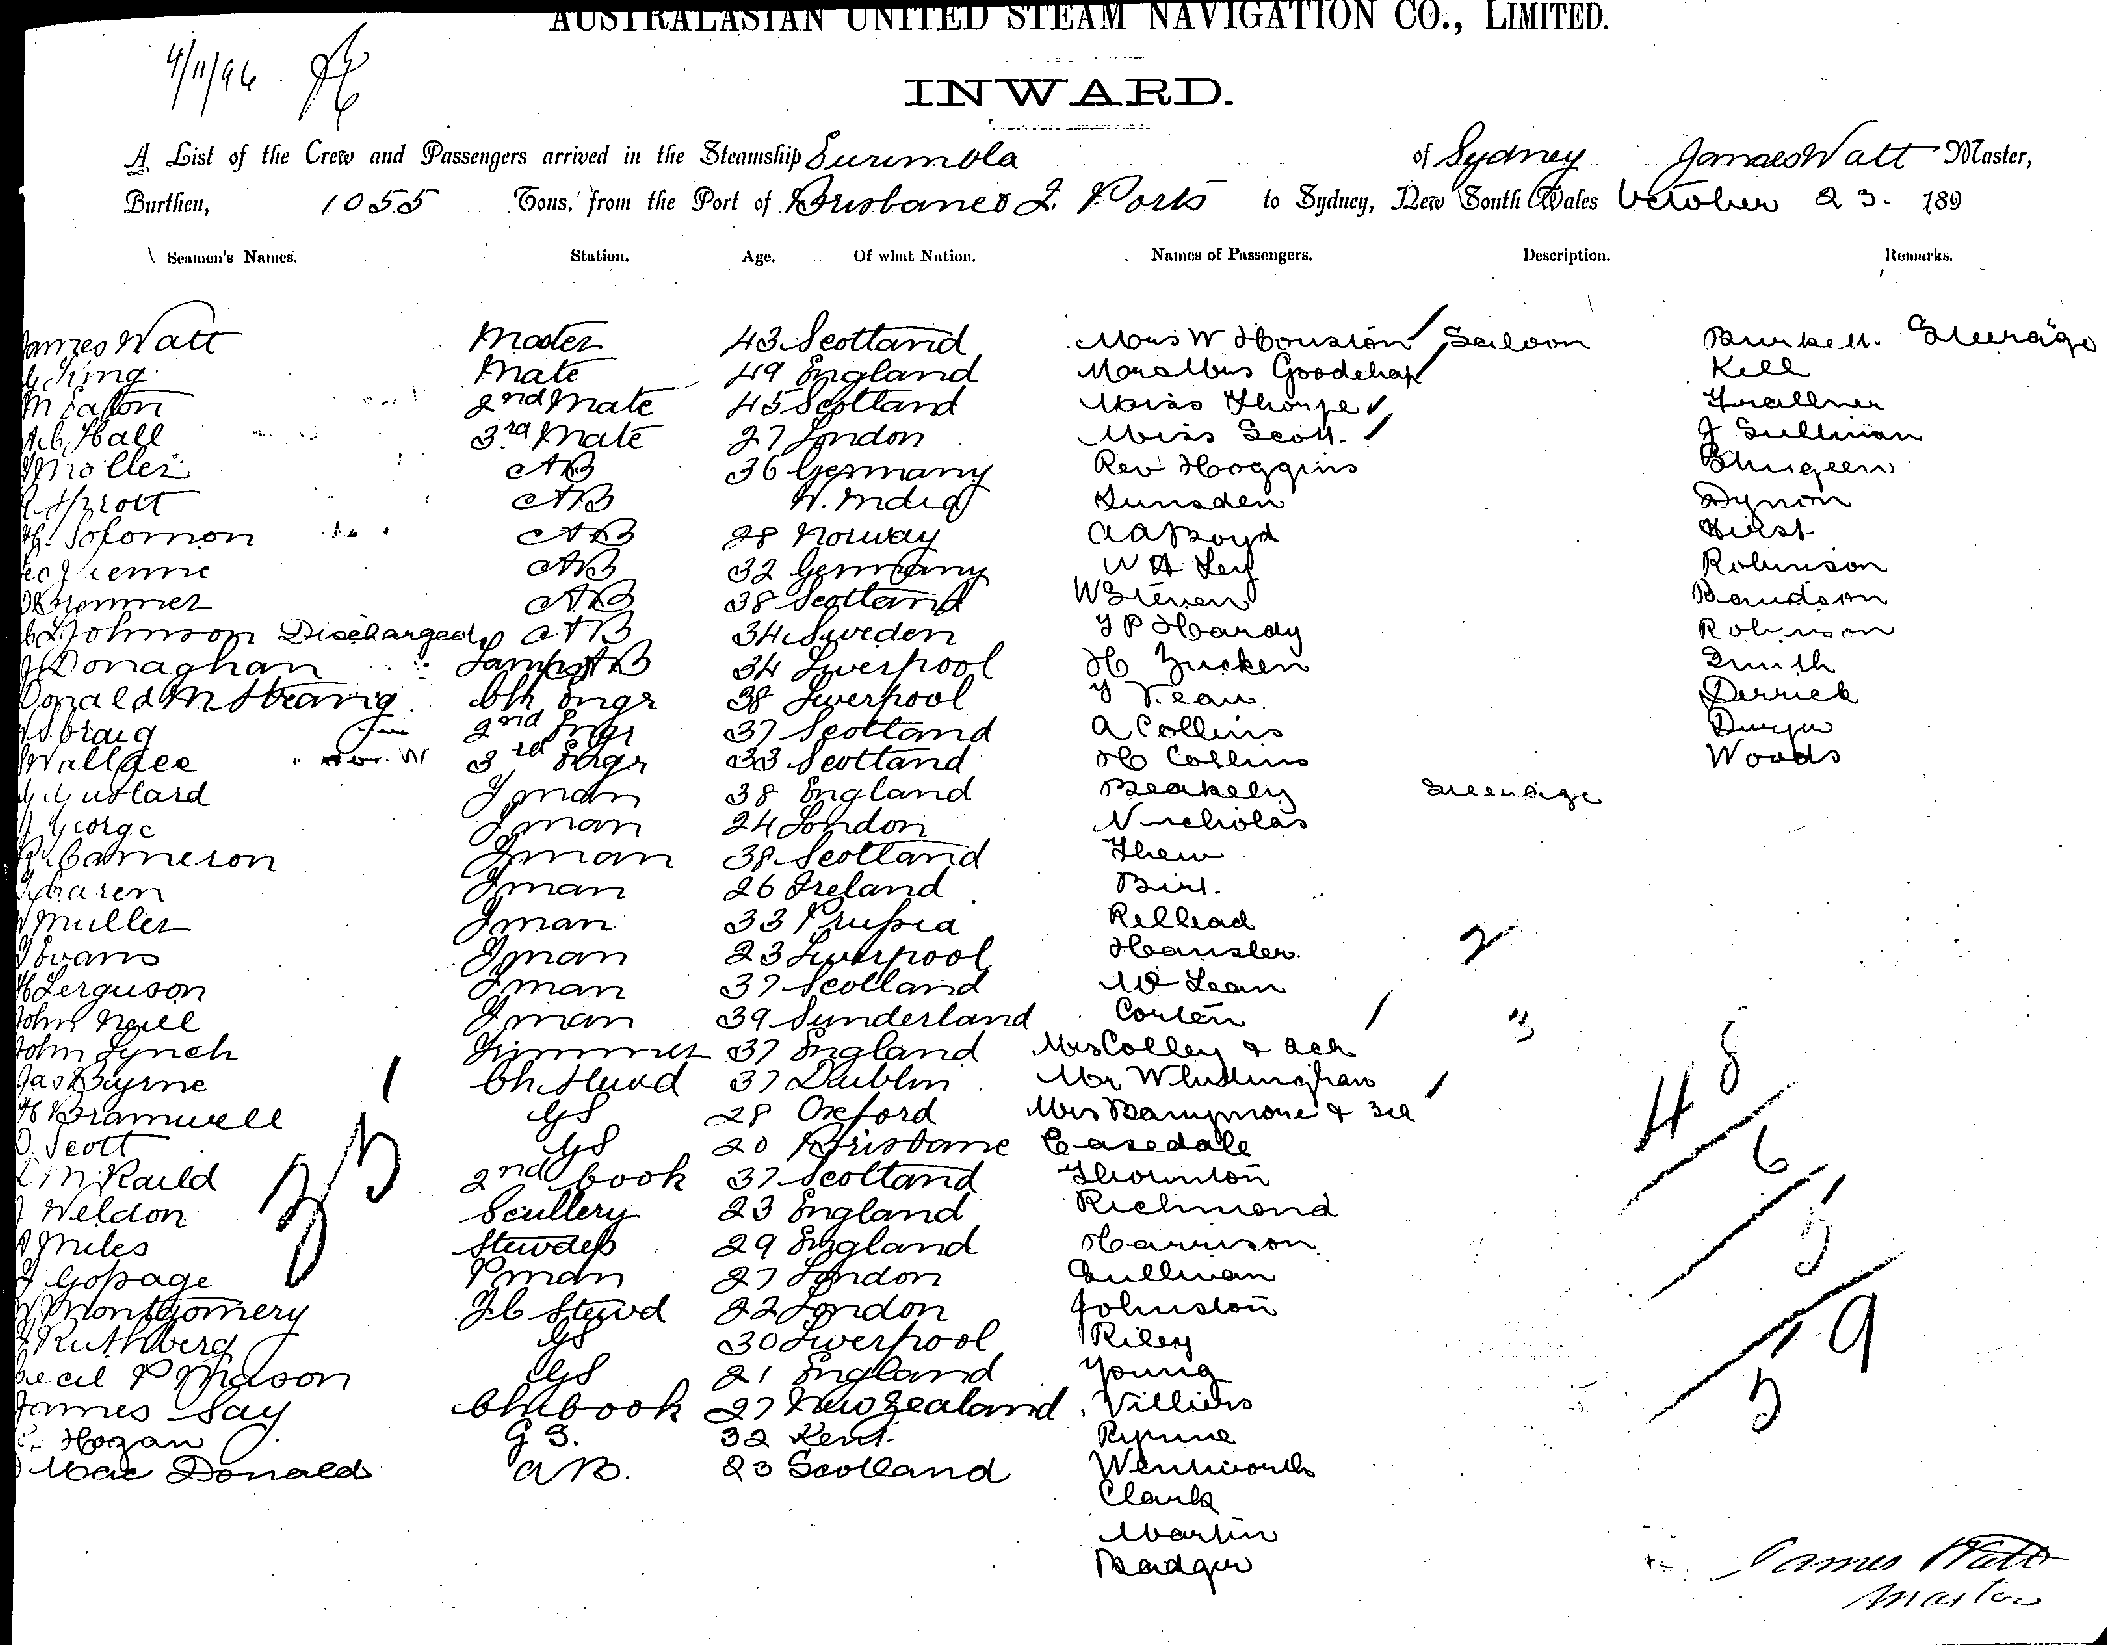 AUSTRALASIAN UNITED STEAM NAVIGATION CO., LIMITED.
4/11/96
INWARD.
A List of the Crew and Passengers arrived in the Steamship Eurimbla of Sydney James Watt Master,
Burthen, 1055 Tons, from the Port of Brisbane & Q. Ports to Sydney, New South Wales October 23. 189
Seamen's Names. Station. Age. Of what Nation. Names of Passengers. Description. Remarks.
James Watt Master 43 Scotland Mrs W Houston Saloon Steerage
King Mate 49 England Mr & Mrs Goodchap Kell
2nd Mate 45 Scotland Miss Thorpe
Hall 3rd Mate 27 London Miss Scott J Sullivan
Moller AB 36 Germany Rev Hoggins
Sprott AB W. India Lunsden Dynon
Solomon AB 28 Norway A A Boyd Hirst
AB 32 Germany W A Ley Robinson
AB 38 Scotland W Steven Davidson
Johnson Discharged AB 34 Sweden T P Hardy Robinson
J Donaghan Lamps AB 34 Liverpool H Zucken Smith
Donald M Strang Ch Engr 38 Liverpool Derrick
Craig 2nd Engr 37 Scotland A Collins Dwyer
Wallace 3rd Engr 33 Scotland H Collins Woods
Fman 38 England Beakely Steerage
J George Fman 24 London Nicholas
Cameron Fman 38 Scotland Thew
Fman 26 Ireland Birt.
Muller Fman 33 Prussia Rellead
Evans Fman 23 Liverpool Hansler 2
H Ferguson Fman 37 Scotland McLean
John Neill Fman 39 Sunderland Corten "
John Lynch Trimmer 37 England Mrs Colley & 2ch
Jas Byrne Ch Stewd 37 Dublin Mr Whittingham
H Bramwell GS 28 Oxford 48
Scott GS 20 Brisbane Easedale
35
2nd Cook 37 Scotland Thornton 6
Weldon Scullery 23 England Richmond
Miles Stewdess 29 England Harrison 5
J Gossage Pman 27 London Sullivan
Montgomery F C Stewd 22 London Johnston
Ruthberg GS 30 Liverpool Riley 59
Cecil P Mason GS 21 England Young
James Say Ch Cook 27 New Zealand Villiers
Hogan G S. 32 Kent. Rynne
Mac Donald AB. 23 Scotland Wentworth
Clark
Martin
Badger
James Watt
Master